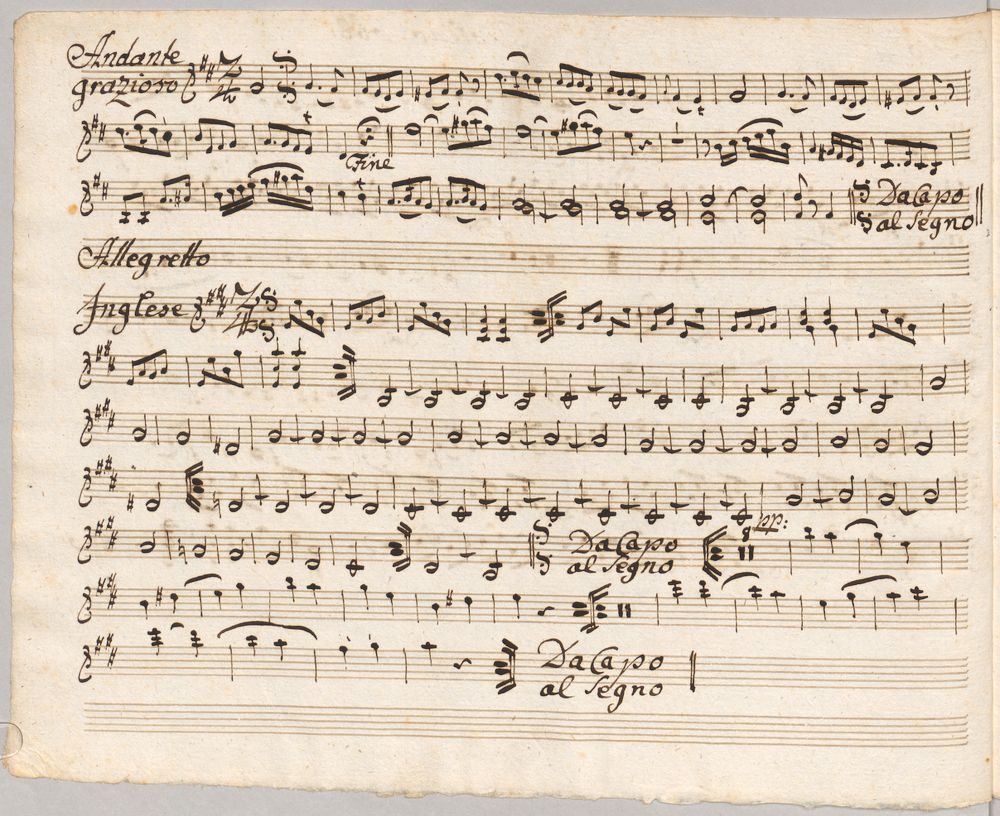 Andante
grazioso 2/4
Fine
Da Capo
al Segno
Allegretto
Inglese 2/4
pp:
8
Da Capo
al Segno
11
11
Da Capo
al Segno